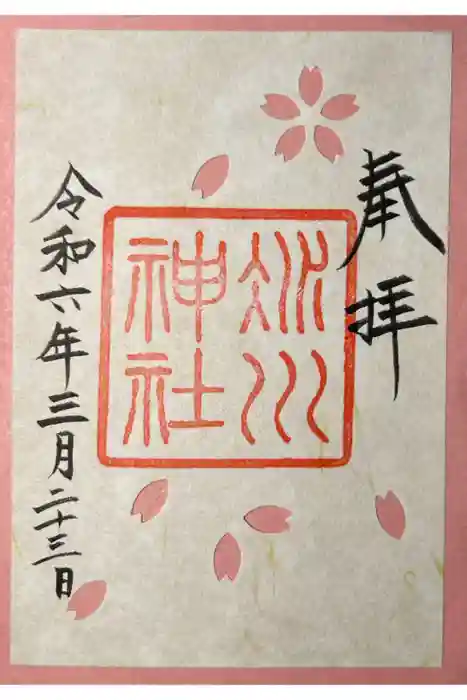 奉拝
氷川
神社
令和六年三月二十三日